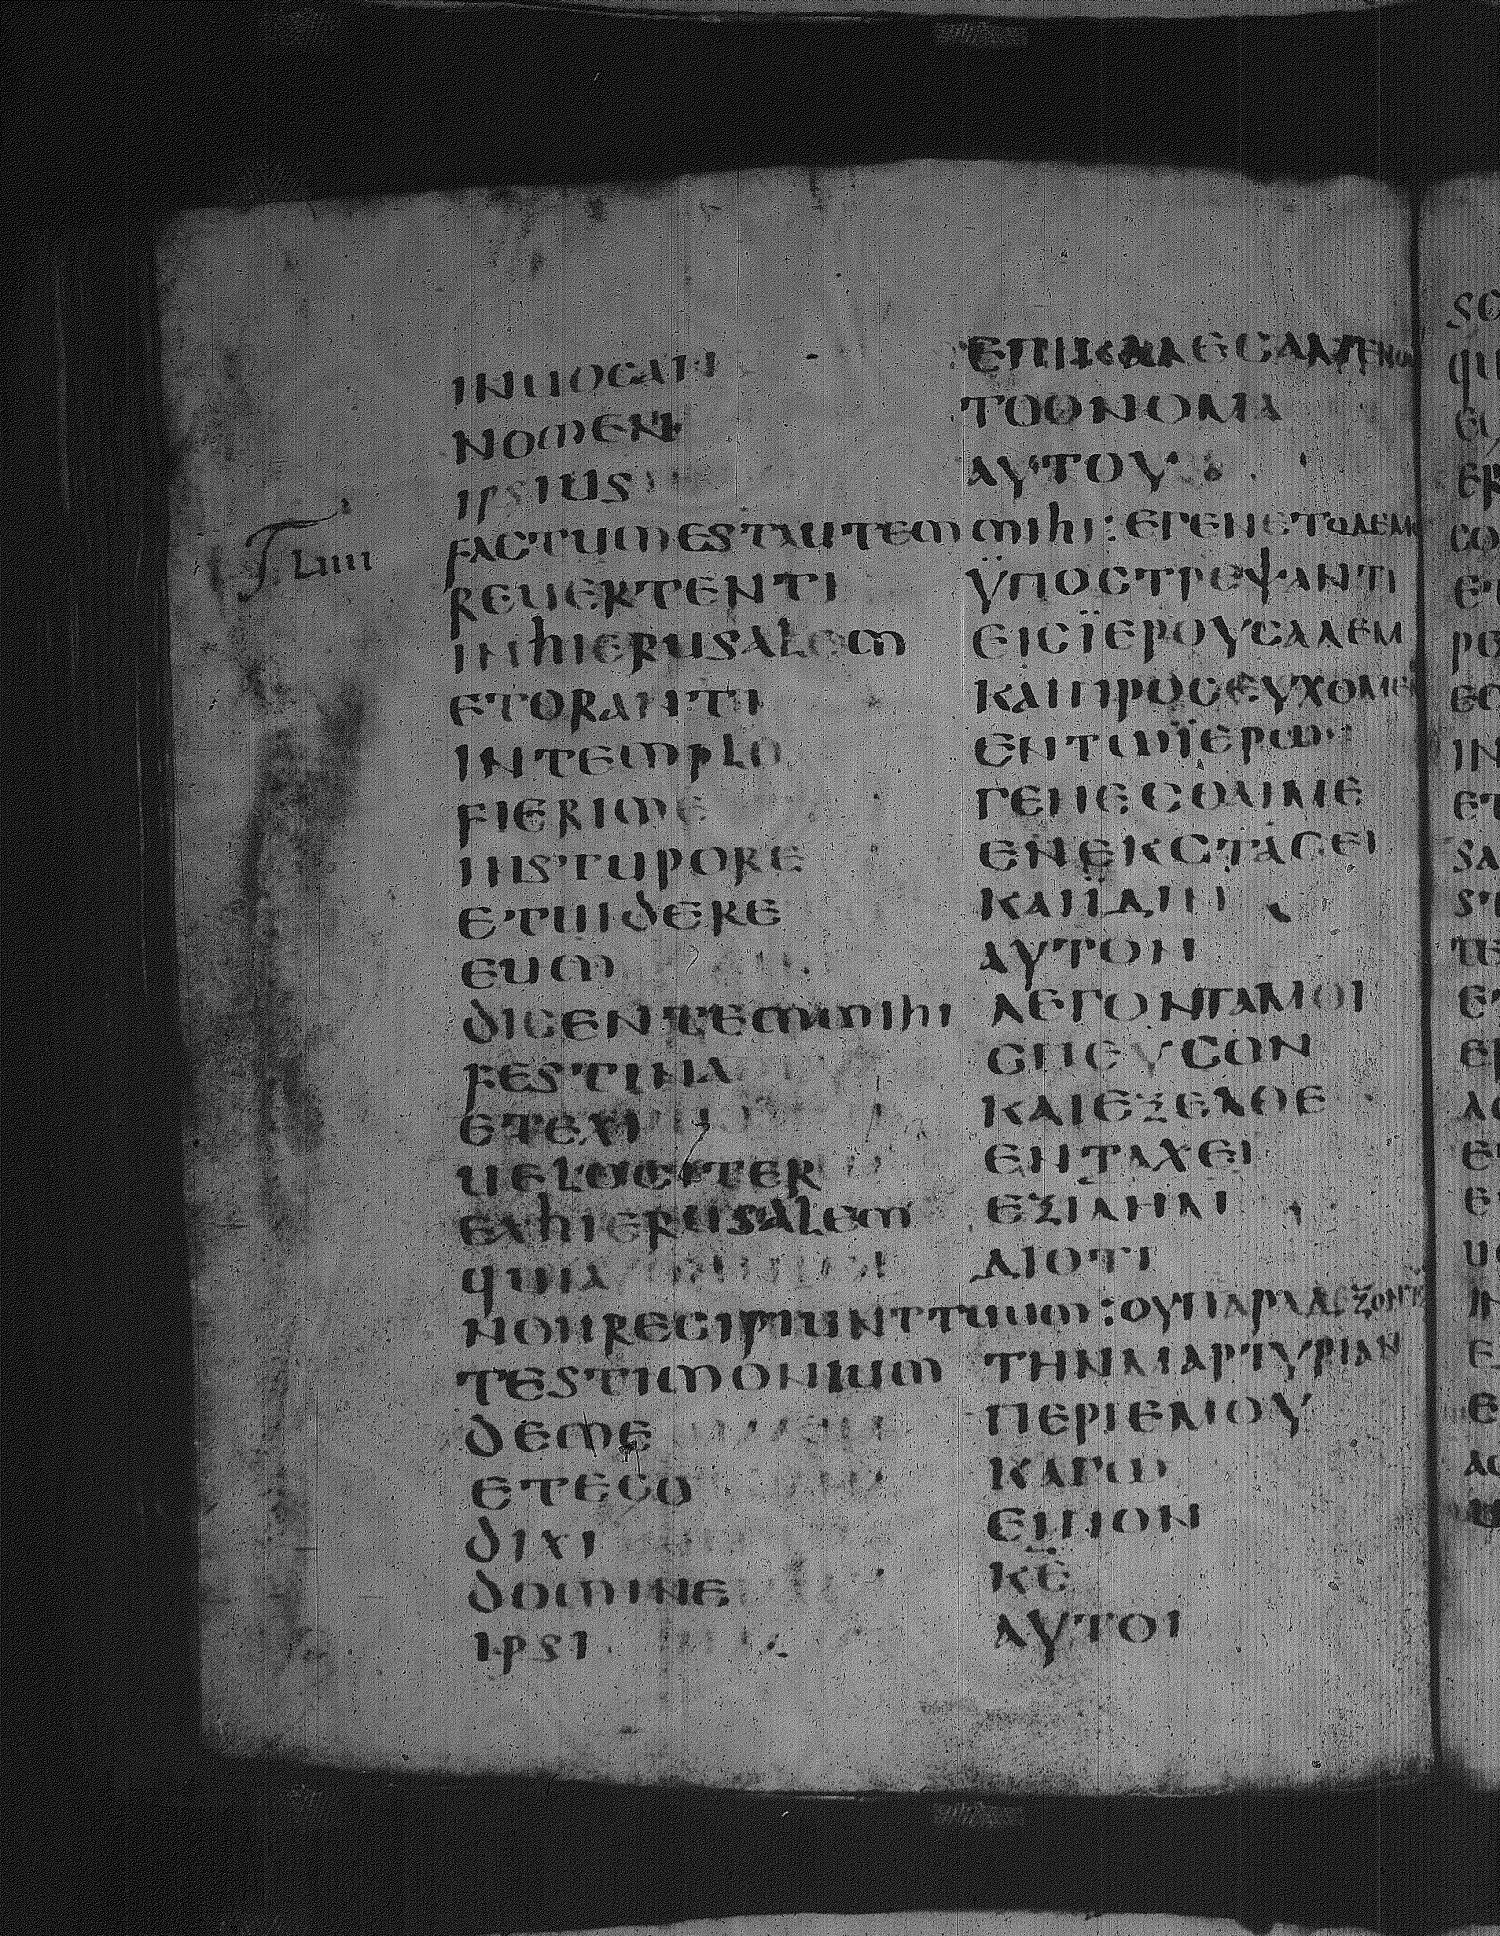 INUOCANI
NOMEN
IPSIUS
T Liiii
FACTUMESTAUTEMMIHI:
REUERTENTI
INHIERUSALEM
ETORANTI
INTEMPLO
FIERIME
INSTUPORE
ETUIDERE
EUM
DICENTEMMIHI
FESTINA
ETEXI
UELOCITER
EXHIERUSALEM
QUIA
NONRECIPIUNTTUUM:
TESTIMONIUM
DEME
ETEGO
DIXI
DOMINE
IPSI
ΕΠΙΚΑΛΕCΑΜΕΝΟC
ΤΟΟΝΟΜΑ
ΑΥΤΟΥ
ΕΓΕΝΕΤΩΔΕΜ
ΫΠΟCΤΡΕΨΑΝΤΙ
ΕΙCΪΕΡΟΥCΑΛΕΜ
ΚΑΙΠΡΟCΕΥΧΟΜΕΝ
ΕΝΤΩΪΕΡΩ
ΓΕΝΕCΘΑΙΜΕ
ΕΝΕΚCΤΑCΕΙ
ΚΑΪΔΙΝ
ΑΥΤΟΝ
ΛΕΓΟΝΤΑΜΟΙ
CΠΕΥCΟΝ
ΚΑΙΕΞΕΛΘΕ
ΕΝΤΑΧΕΙ
ΕΞΙΛΗΜ
ΔΙΟΤΙ
ΟΥΠΑΡΑΔΕΞΟΝΤΕ
ΤΗΝΜΑΡΤΥΡΙΑΝ
ΠΕΡΙΕΜΟΥ
ΚΑΓΩ
ΕΙΠΟΝ
ΚΕ
ΑΥΤΟΙ